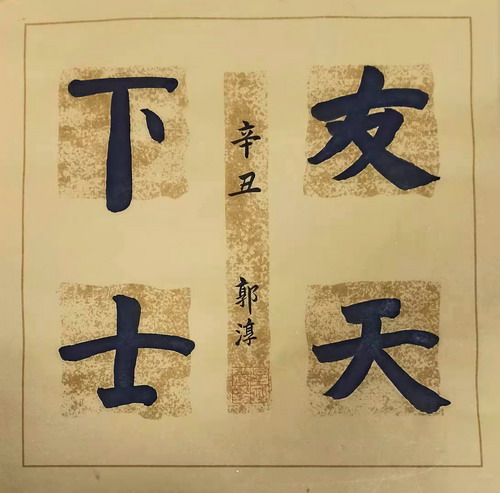 友天
下士
辛丑 郭淳